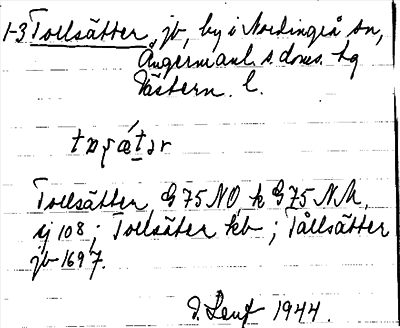 1-3 Tollsätter, jb, by i Nordingrå sn,
Ångermanl. s doms. hg
Västern. l.
Tollsätter, G 75 NO, k G 75 N.M.
ej 108; Tollsäter kb; Tållsätter
jb 1697.
1944.